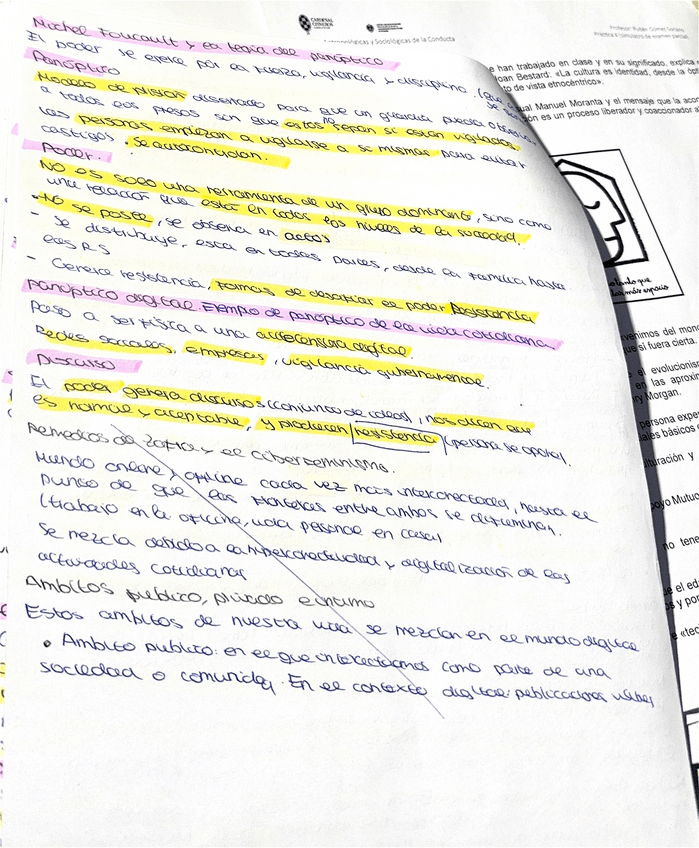 Michel Foucault y la teoría del panóptico
El poder se ejerce por la fuerza, vigilancia y disciplina
Panóptico
Modelo de prisión diseñado para que un guardia pueda observar
a todos los presos sin que estos no sepan si están vigilados.
Las personas empiezan a vigilarse a sí mismas para evitar
castigos. Se autocontrolan.
Poder.
NO es solo una herramienta de un grupo dominante, sino como
una relación que está en todos los niveles de la sociedad.
- NO se posee, se observa en actos
- Se distribuye, esta en todas partes, desde la familia hasta
las RS
- Genera resistencia, formas de desafiar el poder Resistencia
Panóptico digital. Ejemplo de panóptico de la vida cotidiana
Paso a ser física a una arquitectura digital.
Redes sociales, empresas, vigilancia gubernamental.
Discurso
El poder genera discursos (conjunto de ideas), nos dicen que
es normal y aceptable, y producen resistencia (persona se opone).
Remedios de Zafra y el ciberfeminismo.
Mundo online y offline cada vez más interconectado, hasta el
punto de que las fronteras entre ambos se difuminan.
(trabajo en la oficina, vida personal en casa)
Se mezcla debido a la hiperconectividad y digitalización de las
actividades cotidianas
Ambitos público, privado e íntimo
Estos ambitos de nuestra vida se mezclan en el mundo digital
• Ambito publico: en el que interactuamos como parte de una
sociedad o comunidad. En el contexto digital: publicaciones
CARDENAL
CISNEROS
y Sociológicas de la Conducta
Profesor: Rubén Gómez Soriano
Práctica 4 simulacro de examen parcial
e han trabajado en clase y en su significado, explica
Joan Bestard: «La cultura es identidad, desde la
to de vista etnocéntrico».
ual Manuel Moranta y el mensaje que la
ón es un proceso liberador y coaccionador al
lo tanto que
las más espacio
venimos del mono
ue sí fuera cierta.
el evolucionis
en las aproxim
ry Morgan.
persona exper
ales básicos
ulturación y
oyo Mutuo
no tene
e el ed
s y por
e «tec